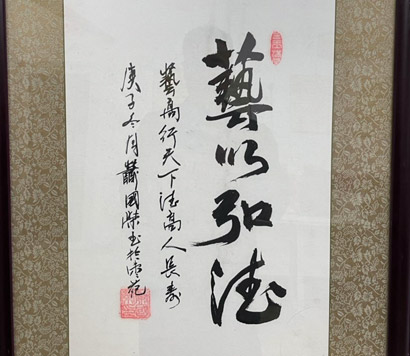 藝以弘德
藝高行天下德高人長壽
庚子冬月蕭國榮書於